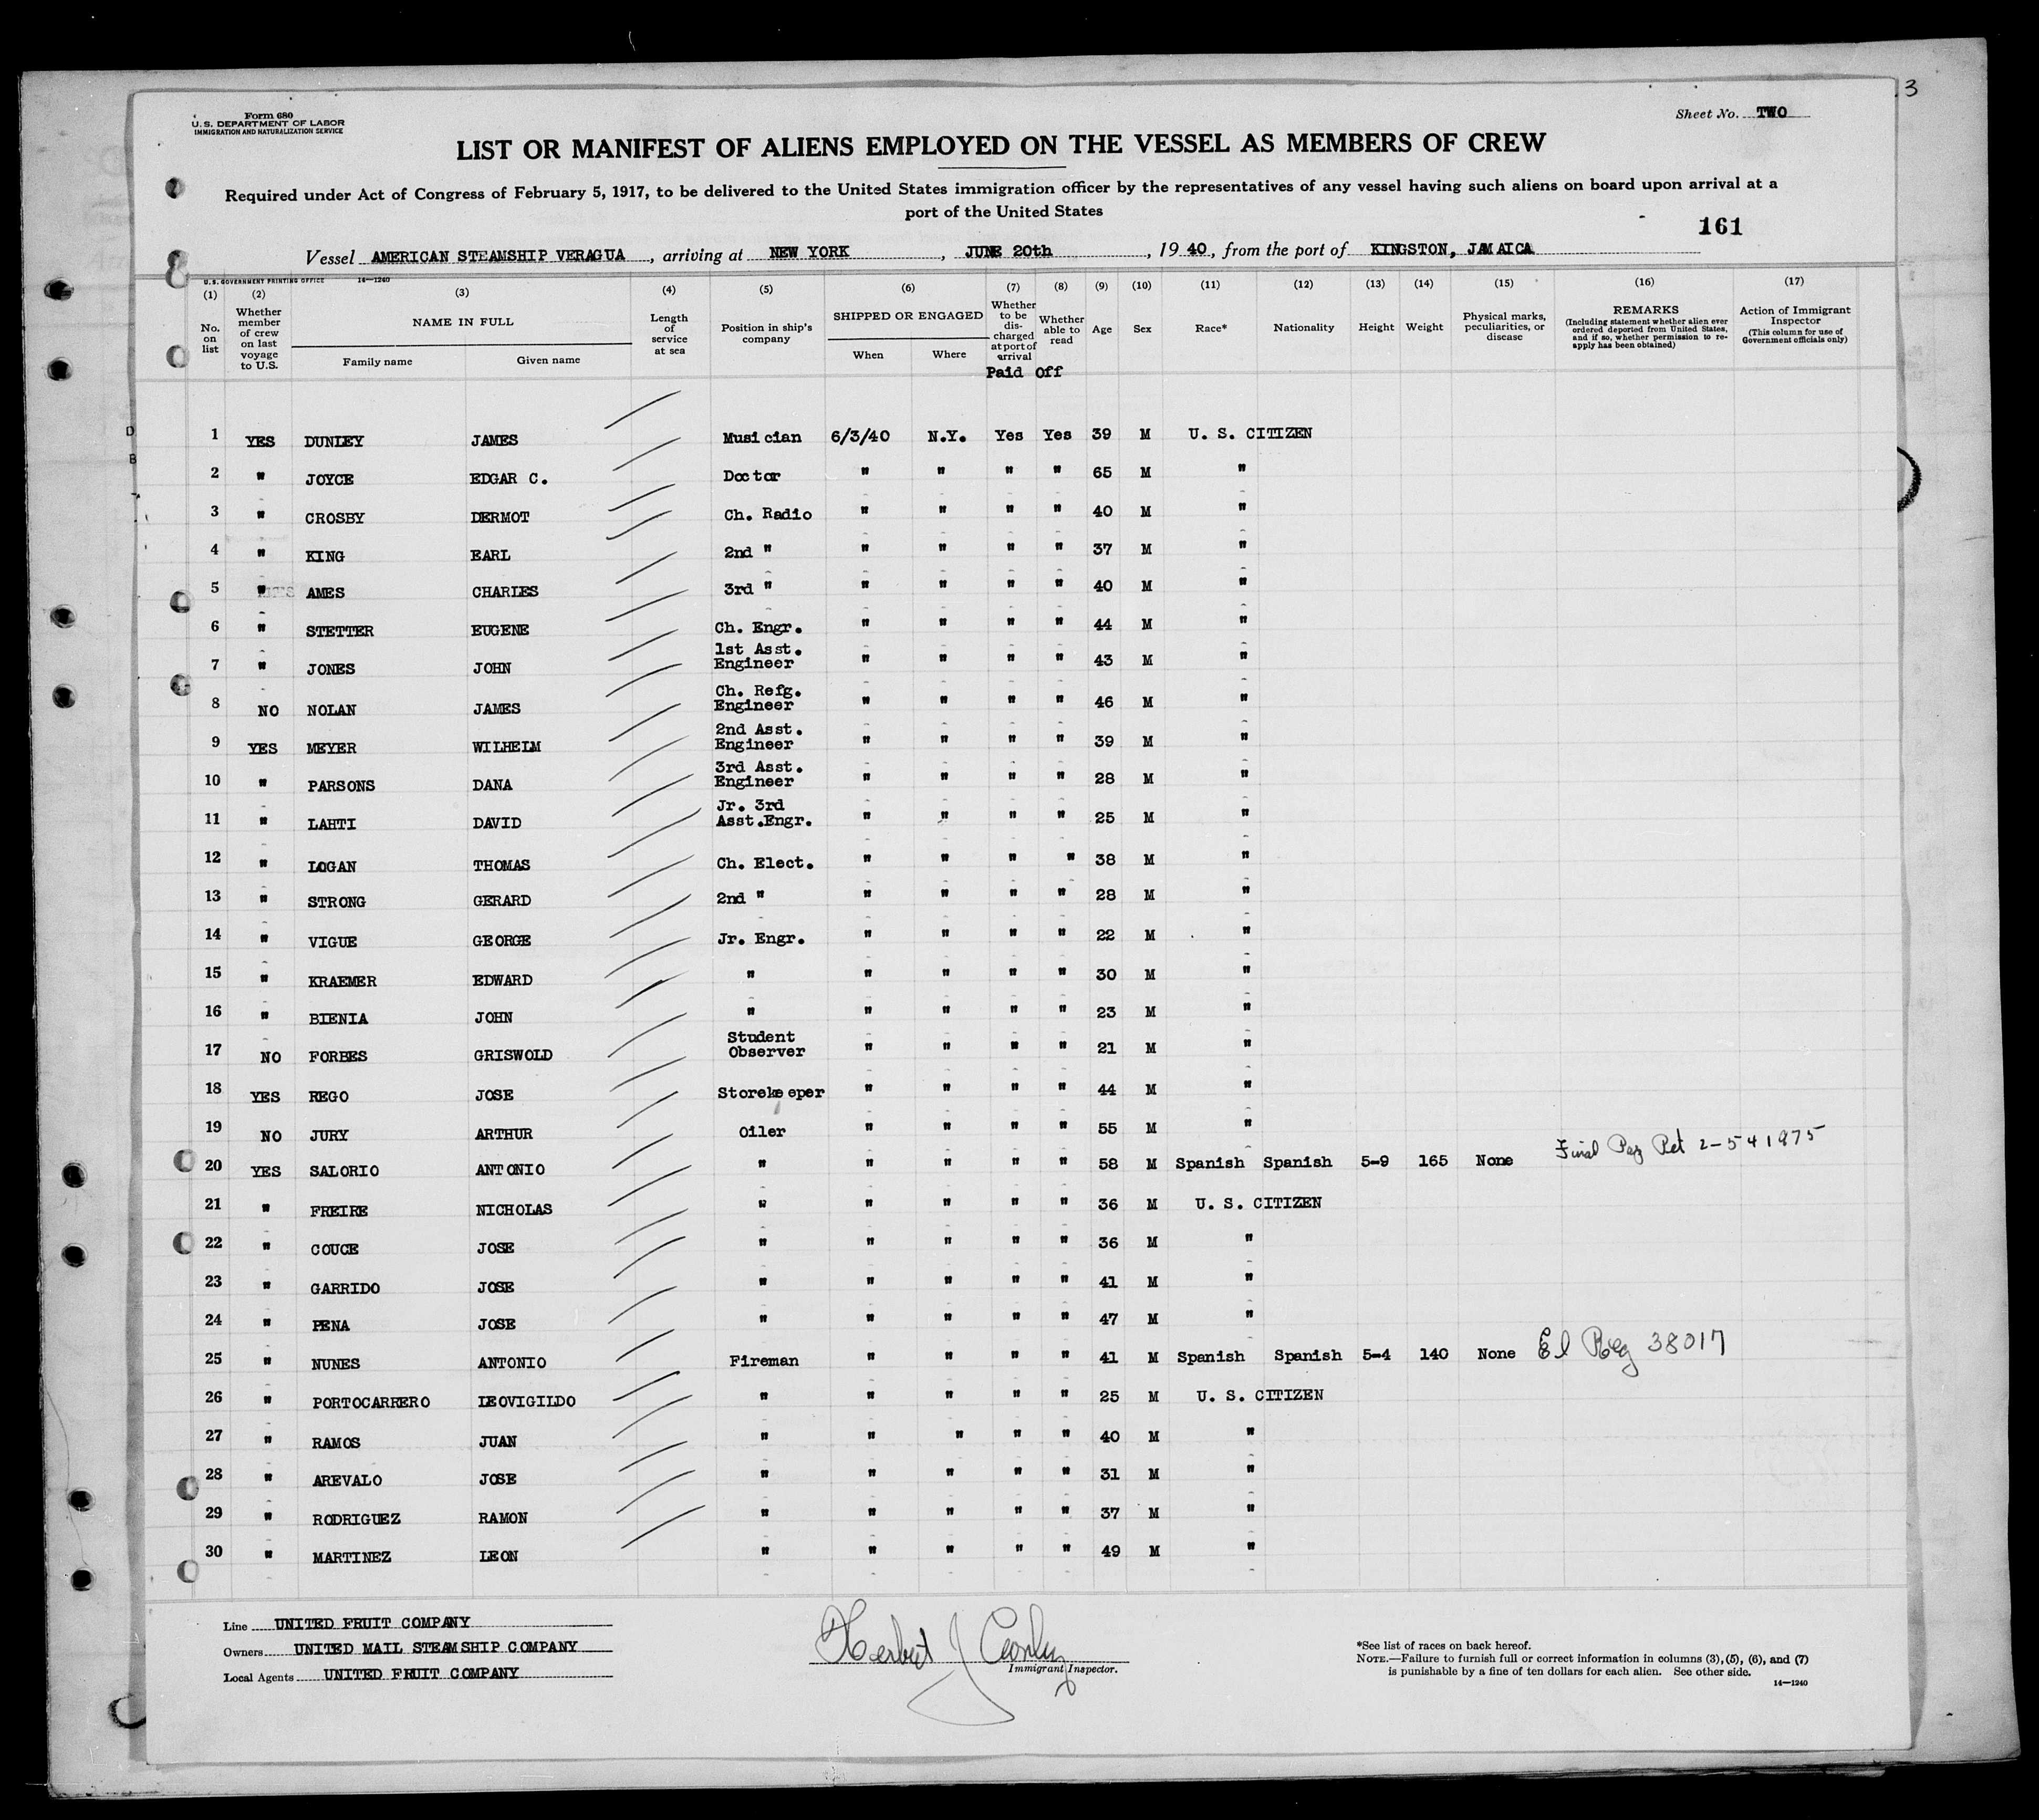 3
Form 680
U. S. DEPARTMENT OF LABOR
IMMIGRATION AND NATURALIZATION SERVICE
Sheet No. TWO
LIST OR MANIFEST OF ALIENS EMPLOYED ON THE VESSEL AS MEMBERS OF CREW
Required under Act of Congress of February 5, 1917, to be delivered to the United States immigration officer by the representatives of any vessel having such aliens on board upon arrival at a
port of the United States
161
Vessel AMERICAN STEAMSHIP VERAGUA, arriving at NEW YORK, JUNE 20th, 1940, from the port of KINGSTON, JAMAICA
U. S. GOVERNMENT PRINTING OFFICE 14—1240
(1) (2) (3) (4) (5) (6) (7) (8) (9) (10) (11) (12) (13) (14) (15) (16) (17)
No. on list
Whether member of crew on last voyage to U.S.
NAME IN FULL
Family name Given name
Length of service at sea
Position in ship's company
SHIPPED OR ENGAGED
When Where
Whether to be discharged at port of arrival
Paid Off
Whether able to read
Age
Sex
Race*
Nationality
Height
Weight
Physical marks, peculiarities, or disease
REMARKS
(Including statement whether alien ever ordered deported from United States, and if so, whether permission to re-apply has been obtained)
Action of Immigrant Inspector
(This column for use of Government officials only)
1 YES DUNLEY JAMES Musician 6/3/40 N.Y. Yes Yes 39 M U. S. CITIZEN
2 " JOYCE EDGAR C. Doctor " " " " 65 M "
3 " CROSBY DERMOT Ch. Radio " " " " 40 M "
4 " KING EARL 2nd " " " " " 37 M "
5 " AMES CHARLES 3rd " " " " " 40 M "
6 " STETTER EUGENE Ch. Engr. " " " " 44 M "
7 " JONES JOHN 1st Asst. Engineer " " " " 43 M "
8 NO NOLAN JAMES Ch. Refg. Engineer " " " " 46 M "
9 YES MEYER WILHELM 2nd Asst. Engineer " " " " 39 M "
10 " PARSONS DANA 3rd Asst. Engineer " " " " 28 M "
11 " LAHTI DAVID Jr. 3rd Asst.Engr. " " " " 25 M "
12 " LOGAN THOMAS Ch. Elect. " " " " 38 M "
13 " STRONG GERARD 2nd " " " " " 28 M "
14 " VIGUE GEORGE Jr. Engr. " " " " 22 M "
15 " KRAEMER EDWARD " " " " " 30 M "
16 " BIENIA JOHN " " " " " 23 M "
17 NO FORBES GRISWOLD Student Observer " " " " 21 M "
18 YES REGO JOSE Storekeeper " " " " 44 M "
19 NO JURY ARTHUR Oiler " " " " 55 M "
20 YES SALORIO ANTONIO " " " " " 58 M Spanish Spanish 5-9 165 None Final Pet 2-541975
21 " FREIRE NICHOLAS " " " " " 36 M U. S. CITIZEN
22 " COUCE JOSE " " " " " 36 M "
23 " GARRIDO JOSE " " " " " 41 M "
24 " PENA JOSE " " " " " 47 M "
25 " NUNES ANTONIO Fireman " " " " 41 M Spanish Spanish 5-4 140 None El Reg 38017
26 " PORTOCARRERO LEOVIGILDO " " " " " 25 M U. S. CITIZEN
27 " RAMOS JUAN " " " " " 40 M "
28 " AREVALO JOSE " " " " " 31 M "
29 " RODRIGUEZ RAMON " " " " " 37 M "
30 " MARTINEZ LEON " " " " " 49 M "
Line UNITED FRUIT COMPANY
Owners UNITED MAIL STEAMSHIP COMPANY
Local Agents UNITED FRUIT COMPANY
Herbert J
Immigrant Inspector.
*See list of races on back hereof.
NOTE.—Failure to furnish full or correct information in columns (3), (5), (6), and (7)
is punishable by a fine of ten dollars for each alien. See other side.
14—1240